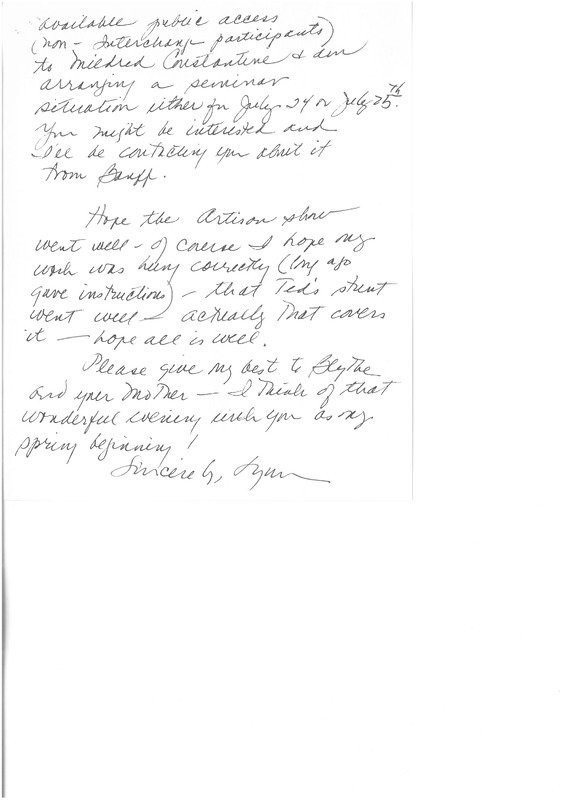 available public access
(non-Interchange participants)
to Mildred Constantine & am
arranging a seminar
situation either for July 24 or July 25th.
You might be interested and
I'll be contacting you about it
from Banff.
Hope the Artison show
went well - of course I hope my
work was hung correctly (long ago
gave instructions) - that Ted's stunt
went well - actually that covers
it - hope all is well.
Please give my best to Blythe
and your mother - I think of that
wonderful evening with you as my
spring beginning!
Sincerely, Lynn